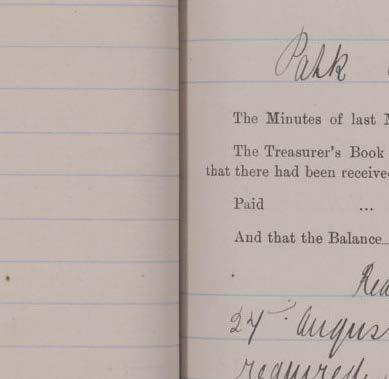 Park
The Minutes of last
The Treasurer's Book
that there had been received
Paid ...
And that the Balance
Rea
24 Augus
required